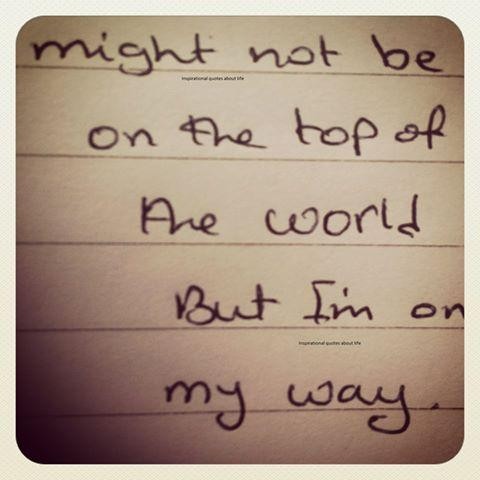 might not be
Inspirational quotes about life
on the top of
the world
But I'm on
Inspirational quotes about life
my way.